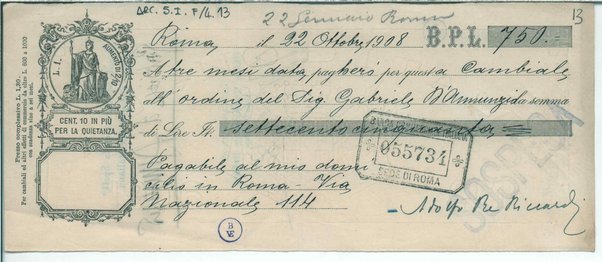 ARC. S. I. F/4. 13
22 Gennaio Roma
13
Roma, il 22 Ottobre 1908 B.P.L. 750.-
A tre mesi data pagherò per questa Cambiale
all'ordine del Sig Gabriele D'Annunzio la somma
di Lire It. settecentocinquanta
Pagabile al mio domi
cilio in Roma - Via
Nazionale 114
Adolfo Re Riccardi
L. 1.
AUMENTO DI 2/10
CENT. 10 IN PIÙ
PER LA QUIETANZA.
Prezzo complessivo L. 1,30.
Per cambiali ed altri effetti di commercio da oltre L. 600 a 1000
con scadenza sino a sei mesi.
055734
SEDE DI ROMA
B
VE